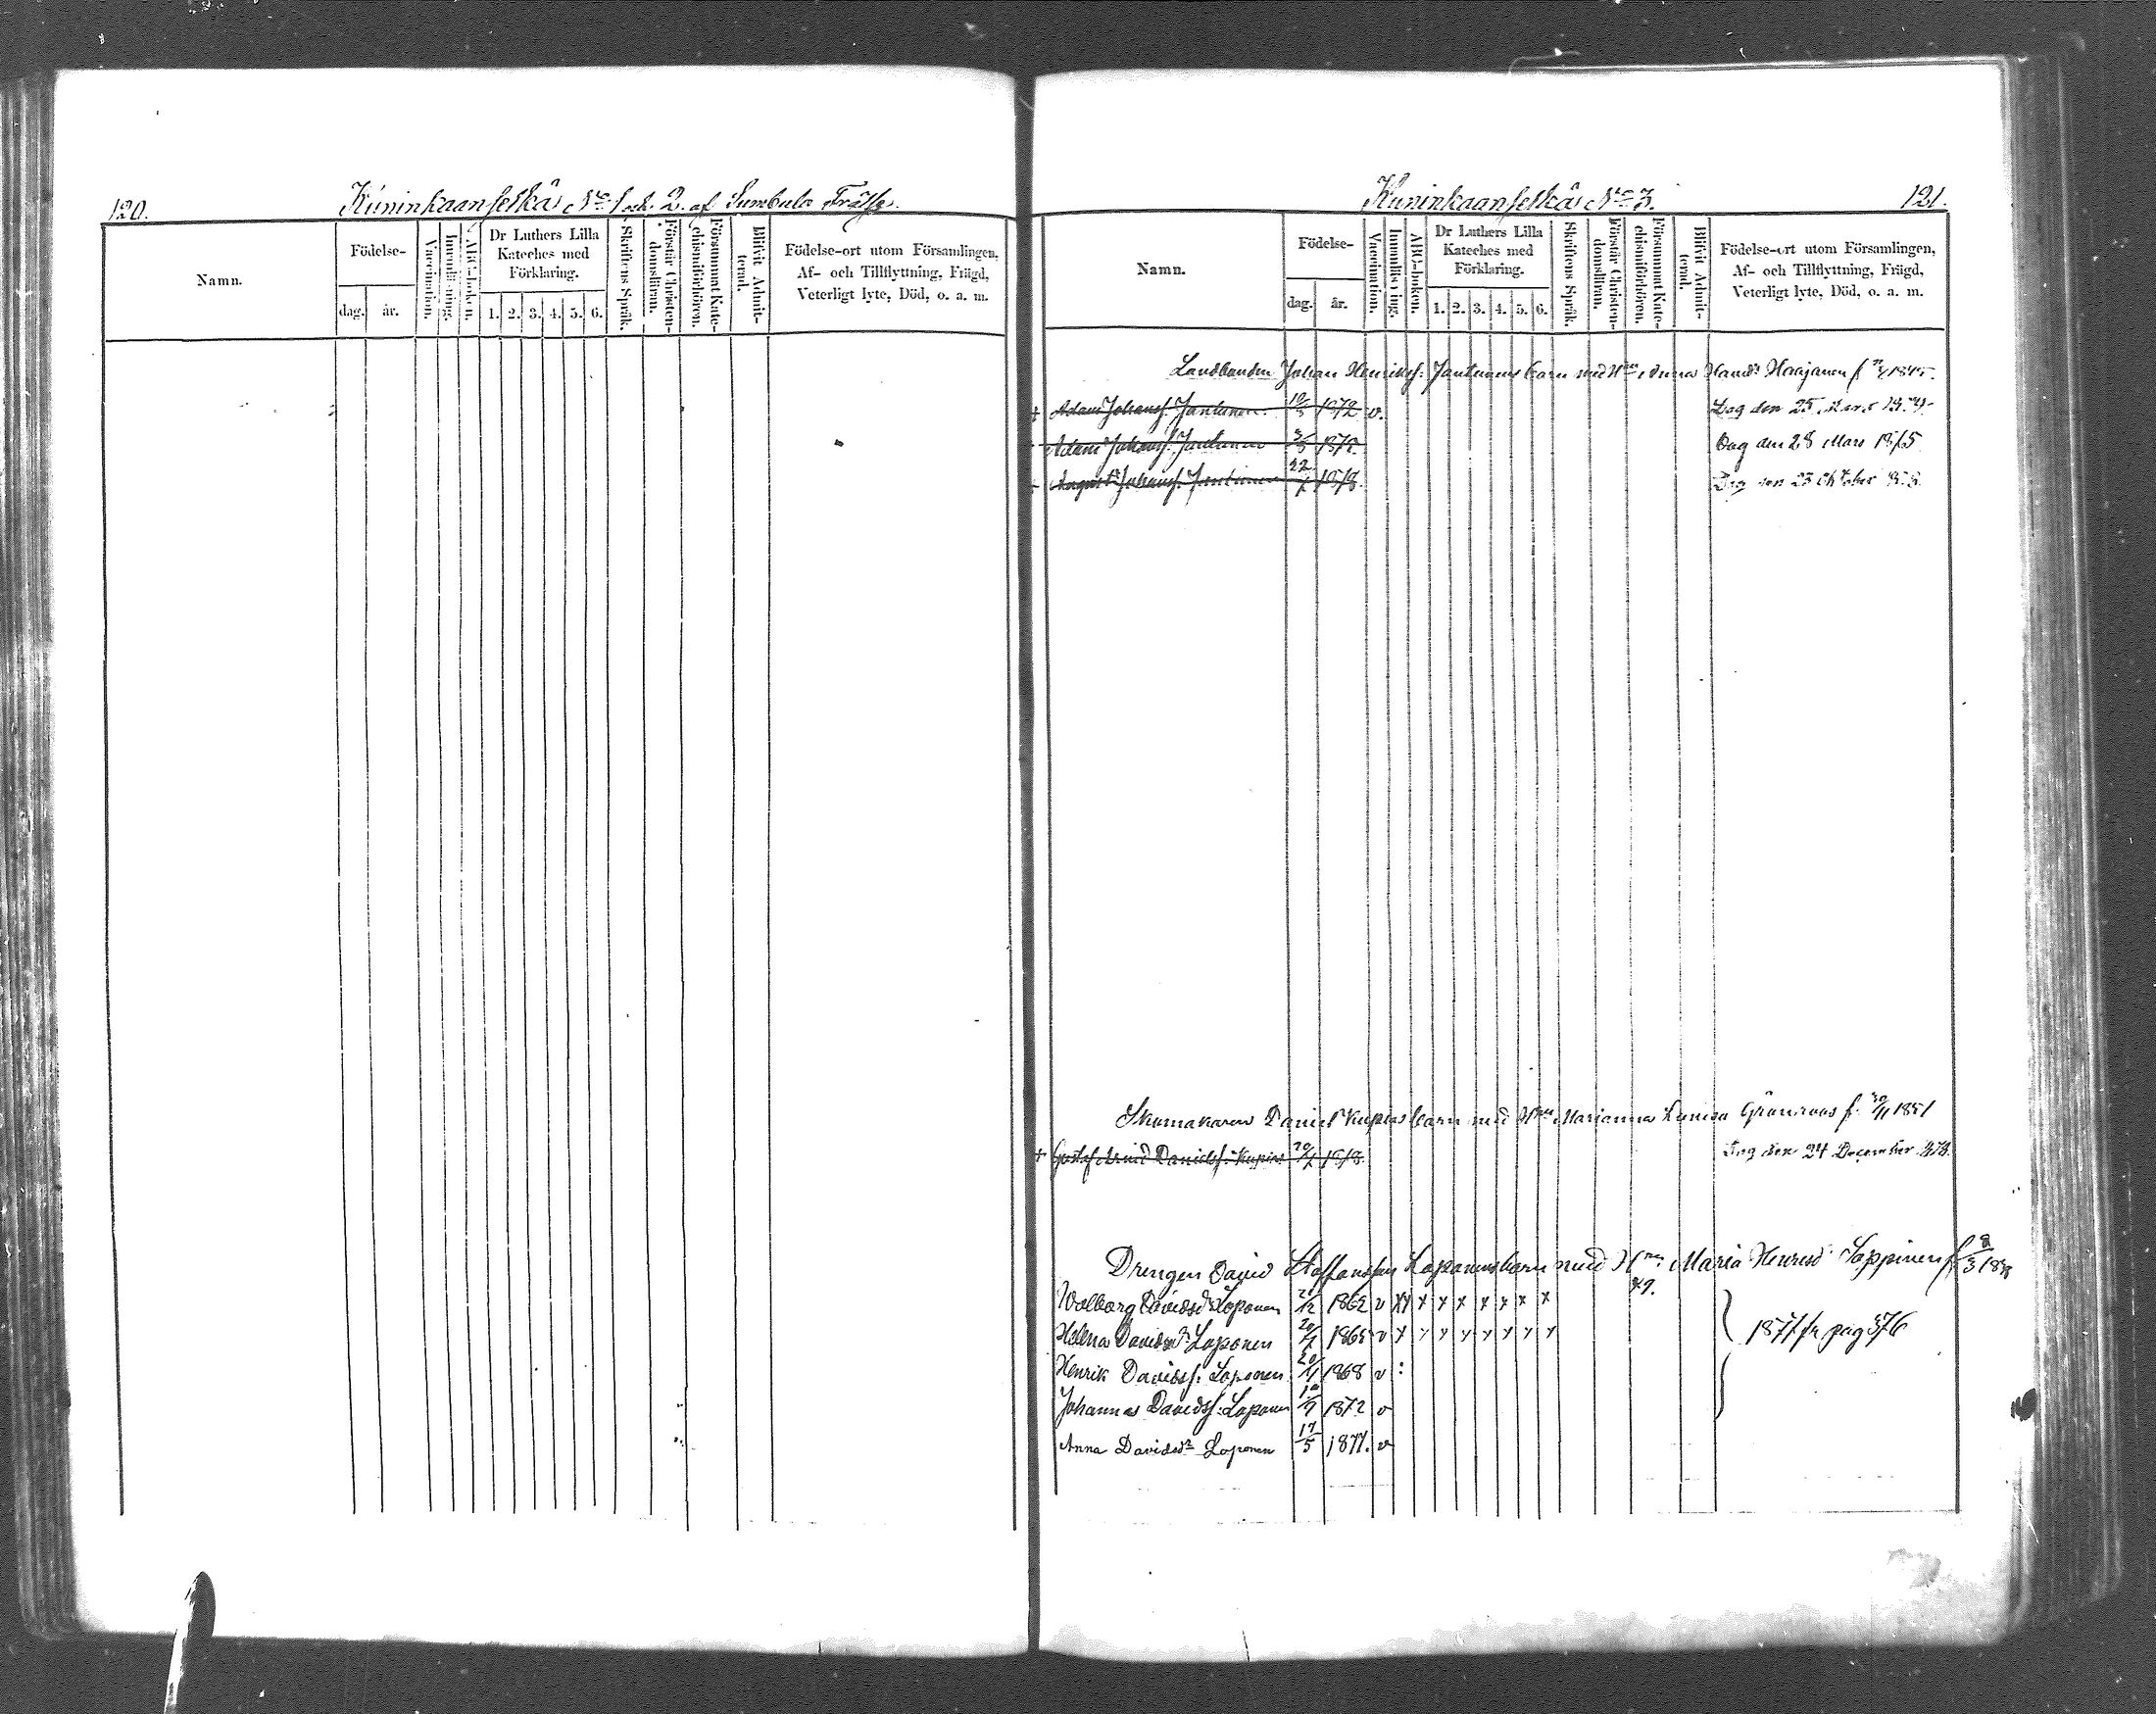 120.
Kuninkaanselkä No 1 och 2. af Sumbula Frälse.
Namn.
Födelse-
dag. år.
Vaccination.
Innanläsning.
ABC-boken.
Dr Luthers Lilla
Kateches med
Förklaring.
1. 2. 3. 4. 5. 6.
Skriftens Språk.
Förstår Christen-
domsläran.
Försummat Kate-
chismiförhören.
Blifvit Admit-
terad.
Födelse-ort utom Församlingen,
Af- och Tillflyttning, Frägd,
Veterligt lyte, Död, o. a. m.
Kuninkaanselkä No 3.
121.
Namn.
Födelse-
dag. år.
Vaccination.
Innanläsning.
ABC-boken.
Dr Luthers Lilla
Kateches med
Förklaring.
1. 2. 3. 4. 5. 6.
Skriftens Språk.
Förstår Christen-
domsläran.
Försummat Kate-
chismiförhören.
Blifvit Admit-
terad.
Födelse-ort utom Församlingen,
Af- och Tillflyttning, Frägd,
Veterligt lyte, Död, o. a. m.
Landbonden Johan Henrikss: Jantunens barn med Hru Anna Haajanen f
+ Adam Johanss: Jantunen 1872 v. Dog den 25 Mars
Adam Johanss: Jantunen Dog den 28 Mars 1875
August Johanss: Jantunen 22 1878. Dog den 23 Oktober
Skomakaren Daniel Kupias barn med Hru Marianna Lovisa Grönroos f. 30/11 1851
+ Gustaf Arvid Danielss: Kupias 1878. Dog den 24 December 1878.
Drengen David Staffansson Loponens barn med Hru Maria Henriksd: Sappinen f 8/3
79.
Walborg Davidsdr Loponen 1862 v x x x x x x x x
Helena Davidsdr Loponen 20/7 1865 v x x x x x x x x
1877 fr pag 376
Henrik Davidss: Loponen 20/11 1868 v :
Johannes Davidss: Loponen 1872 v
Anna Davidsdr Loponen 17/5 1877. v